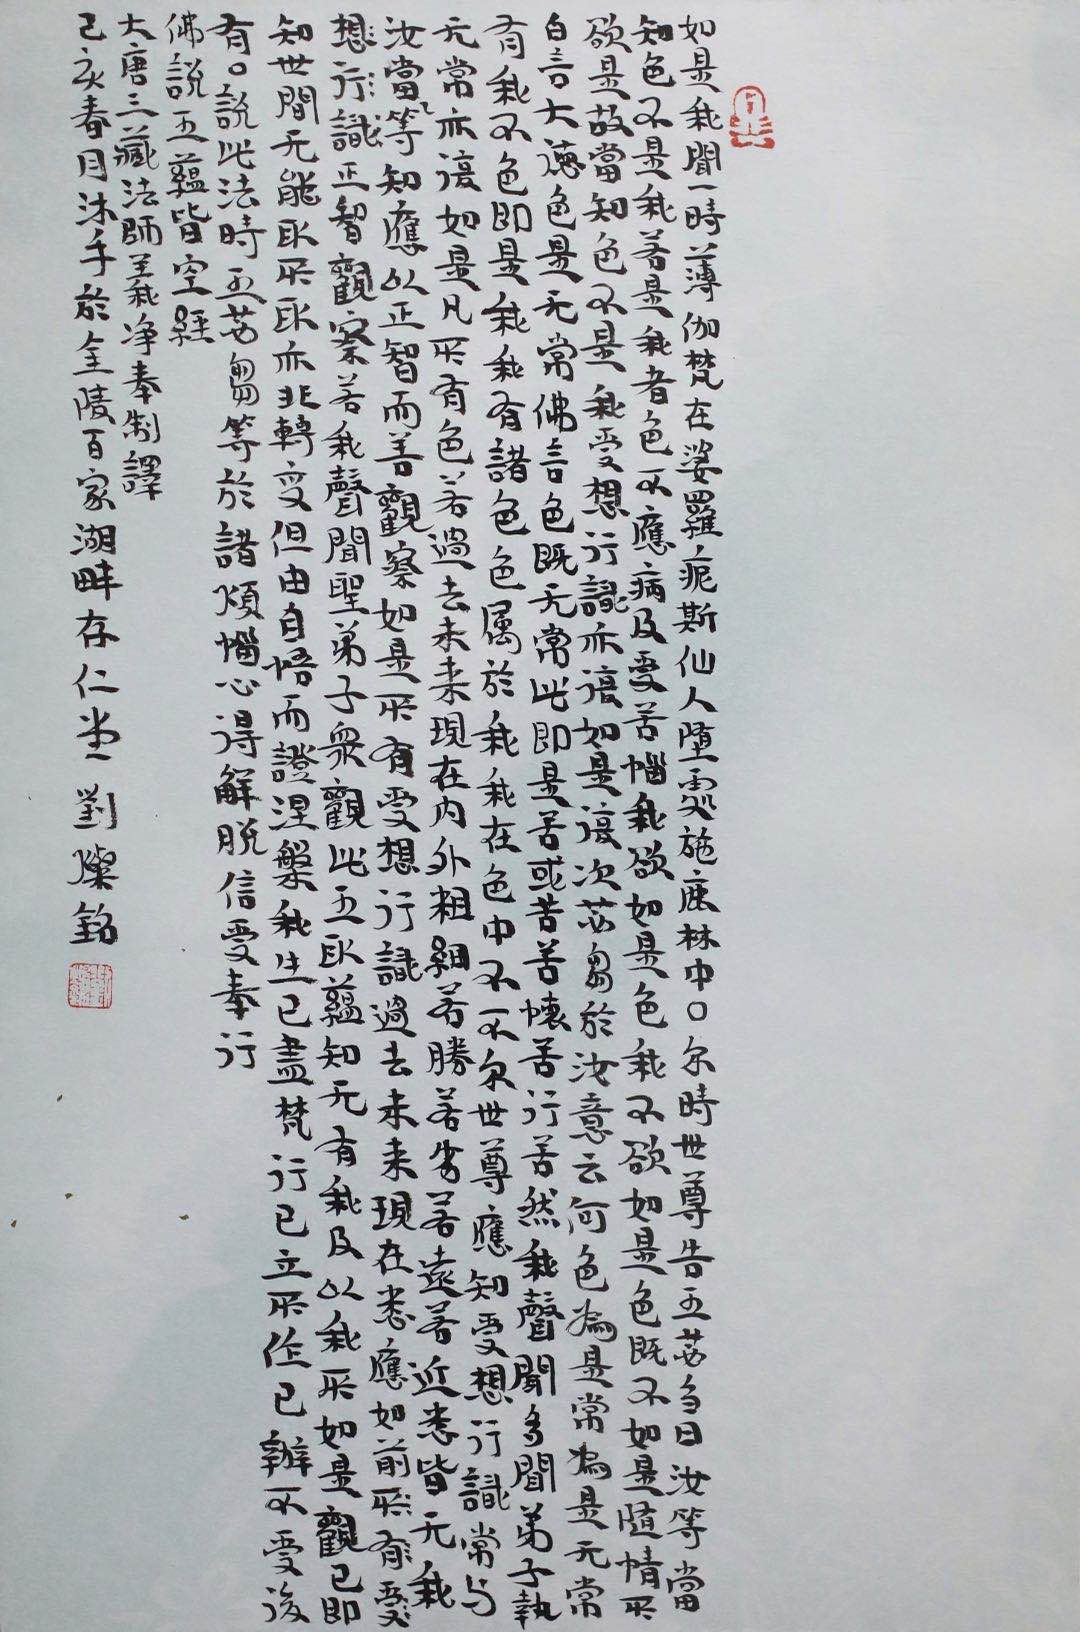 如是我聞一時薄伽梵在婆羅痆斯仙人墮處施鹿林中〇尒時世尊告五苾芻曰汝等當
知色不是我若是我者色不應病及受苦惱我欲如是色我不欲如是色既不如是隨情所
欲是故當知色不是我受想行識亦復如是復次苾芻於汝意云何色為是常為是无常
白言大德色是无常佛言色既无常此即是苦或苦苦懷苦行苦然我聲聞多聞弟子執
有我不色即是我我有諸色色屬於我我在色中不不尒世尊應知受想行識常与
无常亦復如是凡所有色若過去未来現在内外粗細若勝若劣若遠若近悉皆无我
汝當等知應以正智而善觀察如是所有受想行識過去未来現在悉應如前所有受
想行識正智觀察若我聲聞聖弟子衆觀此五取蘊知无有我及以我所如是觀已即
知世間无能取所取亦非轉变但由自悟而證涅槃我生已盡梵行已立所作已辦不受後
有〇說此法時五苾芻等於諸煩惱心得解脱信受奉行
佛說五蘊皆空經
大唐三藏法師義淨奉制譯
己亥春月沐手於金陵百家湖畔存仁堂劉燦銘